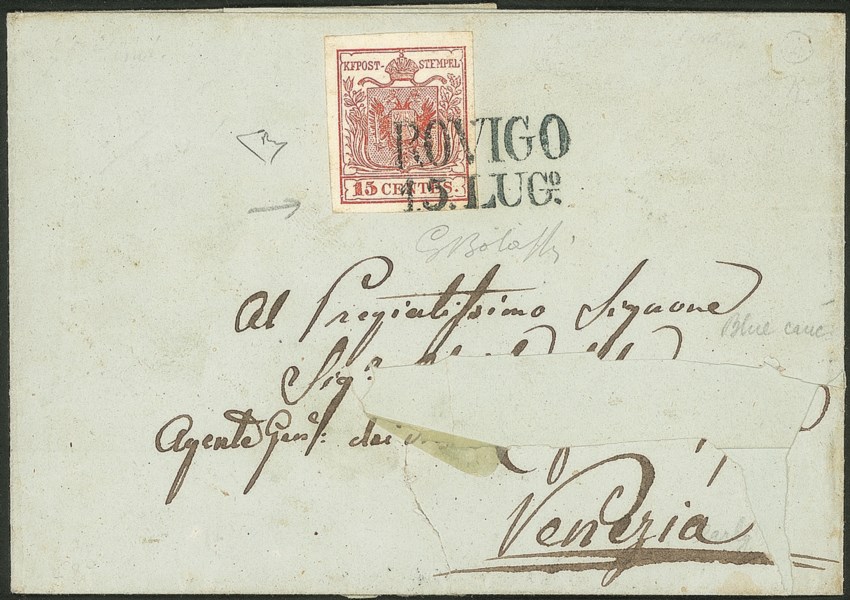 KKPOST-STEMPEL
15 CENTES.
ROVIGO
15. LUGº.
G Bolaffi
Al Pregiatissimo Signore
Blue canc
Sigr.
Agente Genle. dei
Venezia